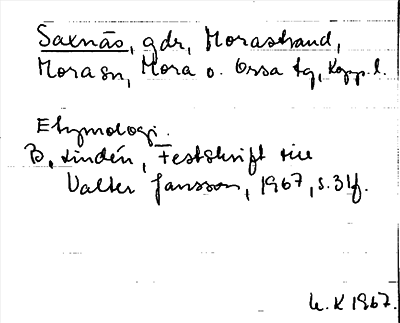 Saxnäs, gdr, Morastrand,
Mora sn, Mora o. Orsa tg, Kopp. l.
Etymologi.
B. Lindén, Festskrift till
Valter Jansson, 1967, s. 31f.
U. K 1967.